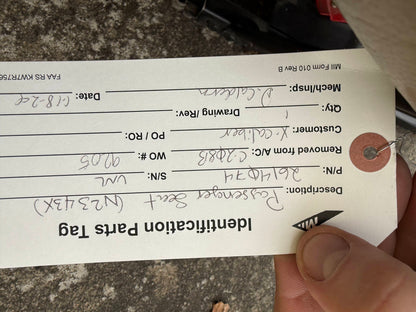 Identification Parts Tag
Description: Passenger Seat (N2343X)
P/N: 2614074 S/N: UNL
Removed from A/C: C-208B WO #: 9205
Customer: X-Caliber PO / RO:
Qty: 1 Drawing /Rev:
Mech/Insp: Date:
Mil Form 010 Rev B FAA RS KW7R756